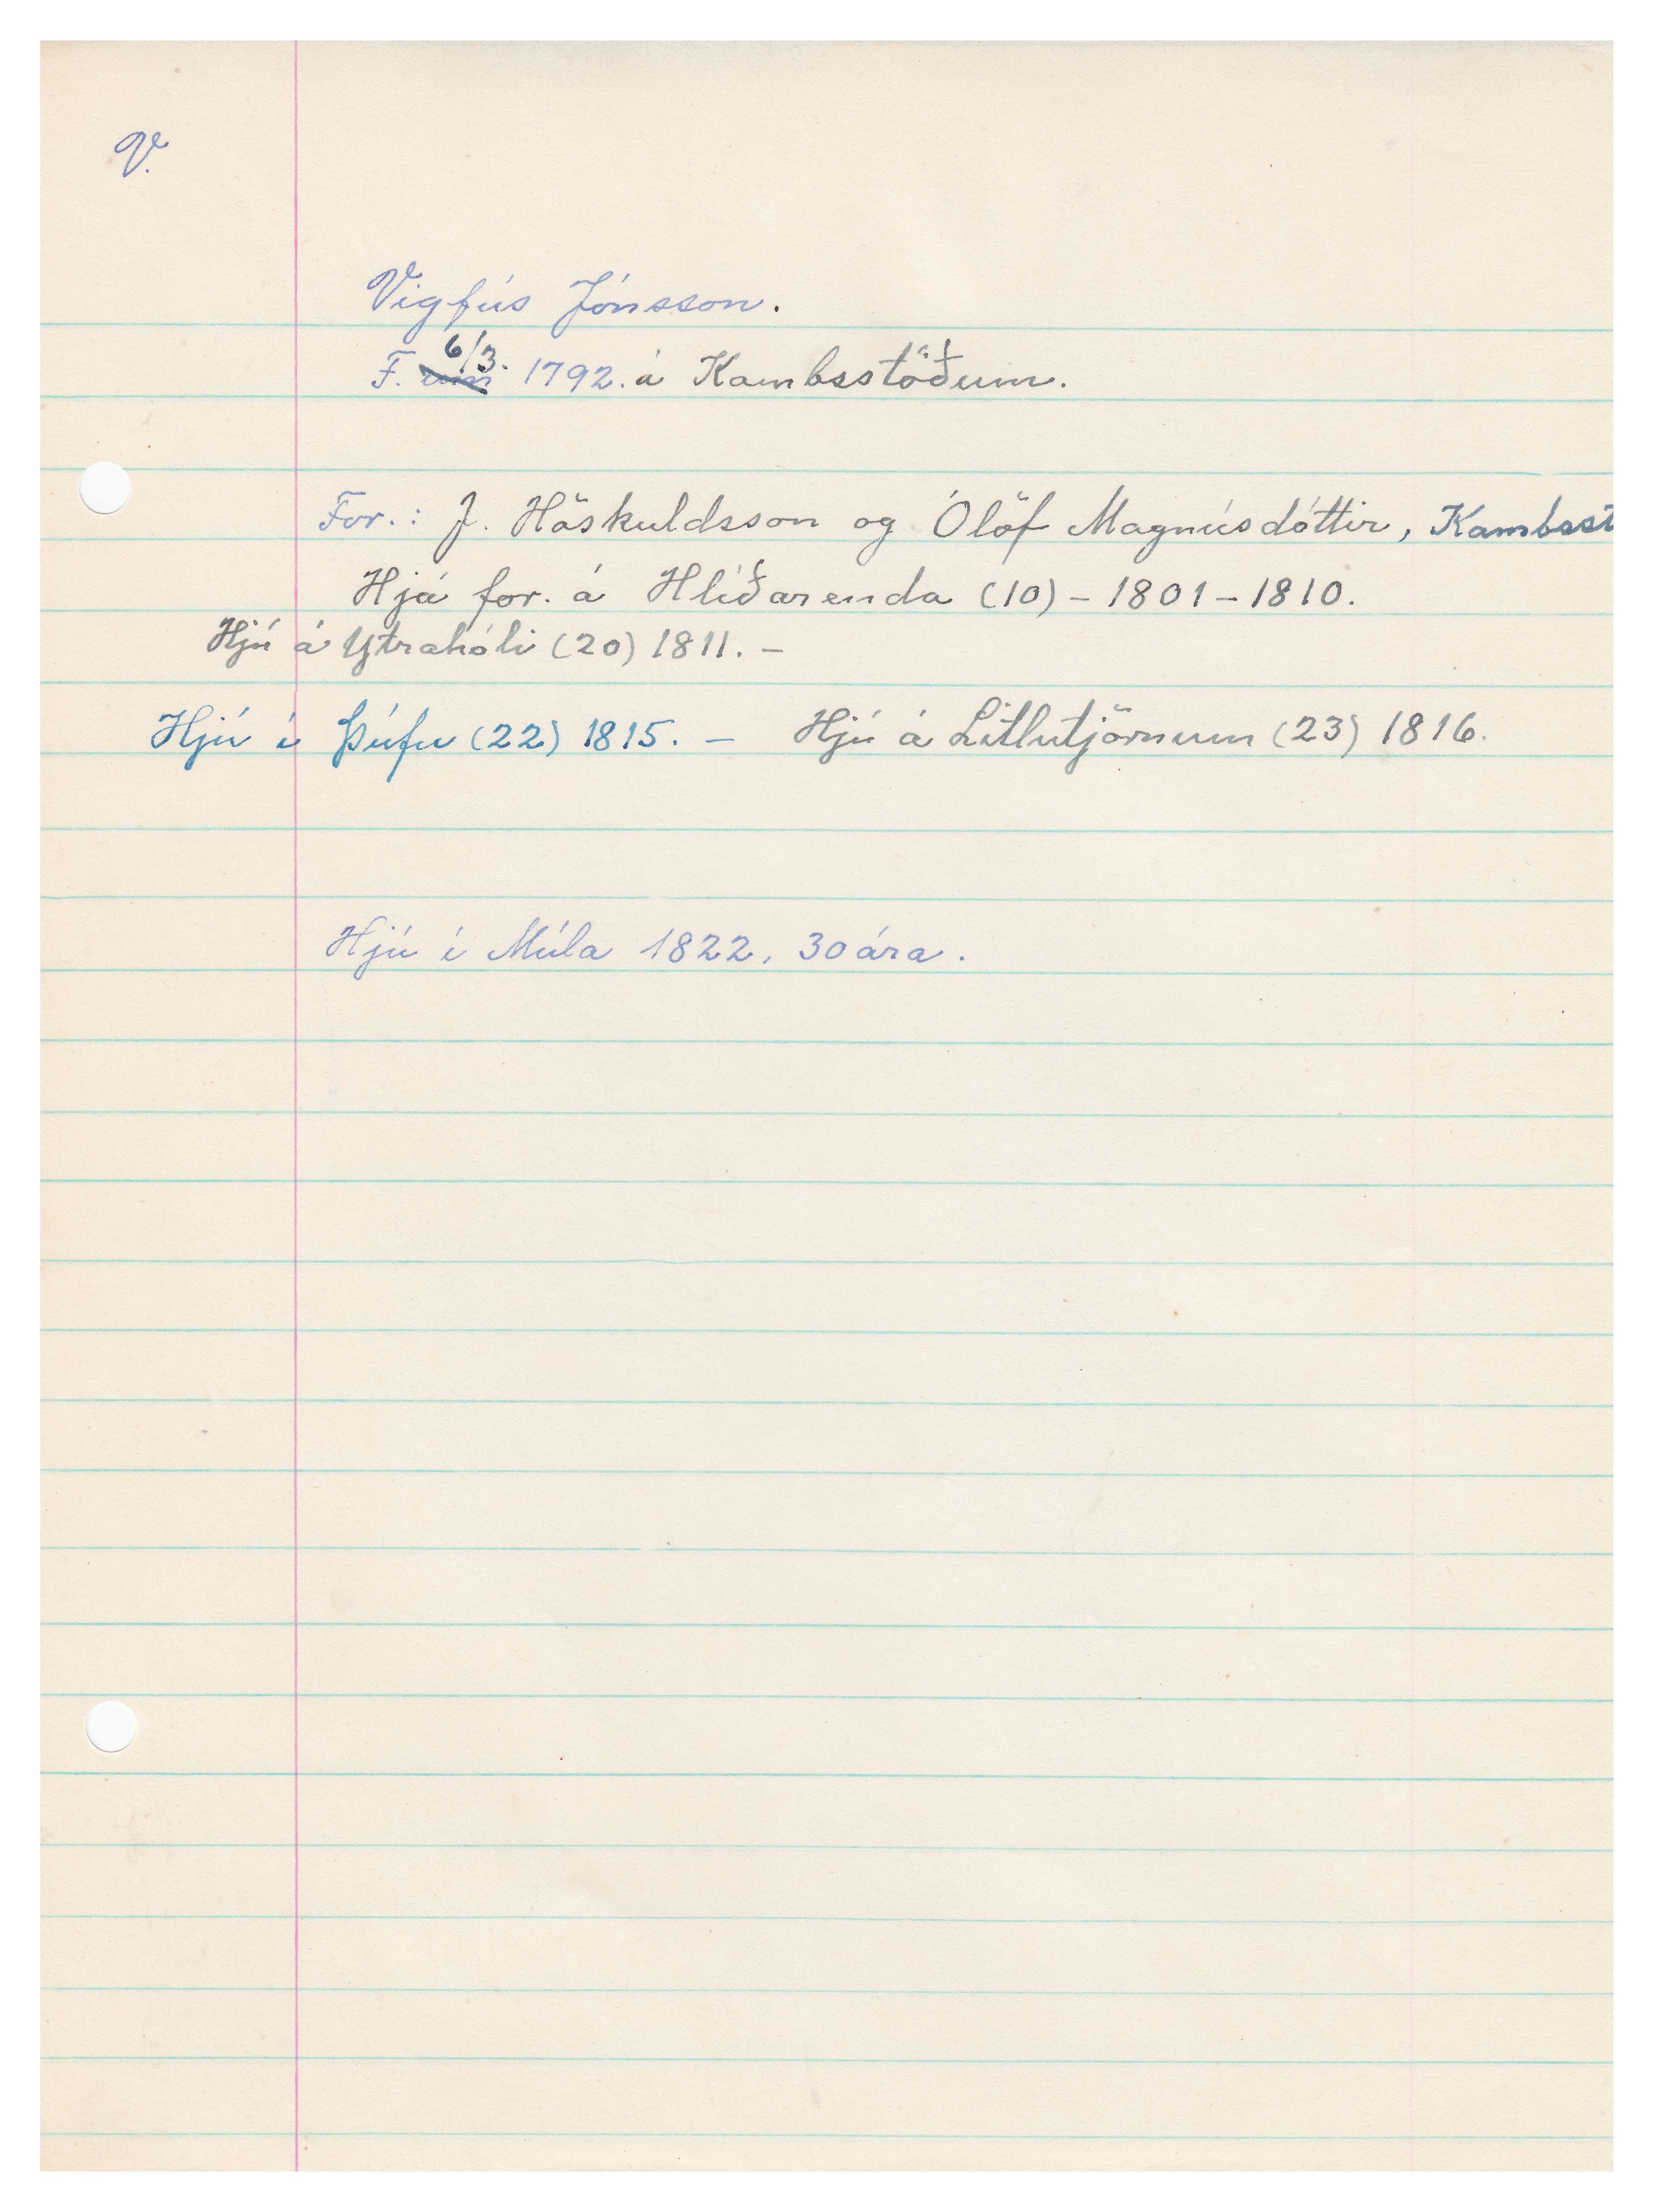 V.
Vigfús Jónsson.
F. 6/3. 1792. á Kambsstöðum.
For.: J. Höskuldsson og Ólöf Magnúsdóttir, Kambsst
Hjá for. á Hlíðarenda (10) - 1801 - 1810.
Hjú á Ytrahóli (20) 1811. -
Hjú í Þúfu (22) 1815. - Hjú á Litlutjörnum (23) 1816.
Hjú í Múla 1822, 30 ára.